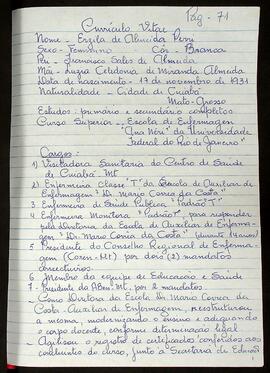 Pág - 71
Currículo Vitae
Nome - Ezila de Almeida Perri
Sexo - Feminino Côr - Branca
Pai - Francisco Sales de Almeida
Mãe - Luzia Celidonia de Miranda Almeida
Data de nascimento - 17 de novembro de 1931
Naturalidade - Cidade de Cuiabá
Mato-Grosso
Estudos: primário e secundário completos
Curso Superior - Escola de Enfermagem
"Ana Néri" da Universidade
Federal do Rio de Janeiro"
Cargos:
1) Visitadora Sanitária do Centro de Saúde
de Cuiabá - Mt
2) Enfermeira Classe "I" da Escola de Auxiliar de
Enfermagem "Dr. Mário Corrêa da Costa"
3 Enfermeira de Saúde Pública "Padrão I"
4 Enfermeira Monitora "Padrão", para responder
pela Diretoria da Escola de Auxiliar de Enferma-
gem "Dr. Mario Correa da Costa" (durante 14 anos)
5 Presidente do Conselho Regional de Enferma-
gem (Coren-Mt) por dois (2) mandatos
consecutivos
6 Membro da equipe de Educação e Saúde
7- Presidente da ABen-Mt, por 2 mandatos
- Como Diretora da Escola Dr. Mario Correa da
Costa - Auxiliar de Enfermagem, reestruturou
a mesma, modernizando o ensino e adequando
o corpo docente, conforme determinação legal
- Agilizou o registro de certificados conferidos aos
concluintes do curso, junto à Secretaria de Educação